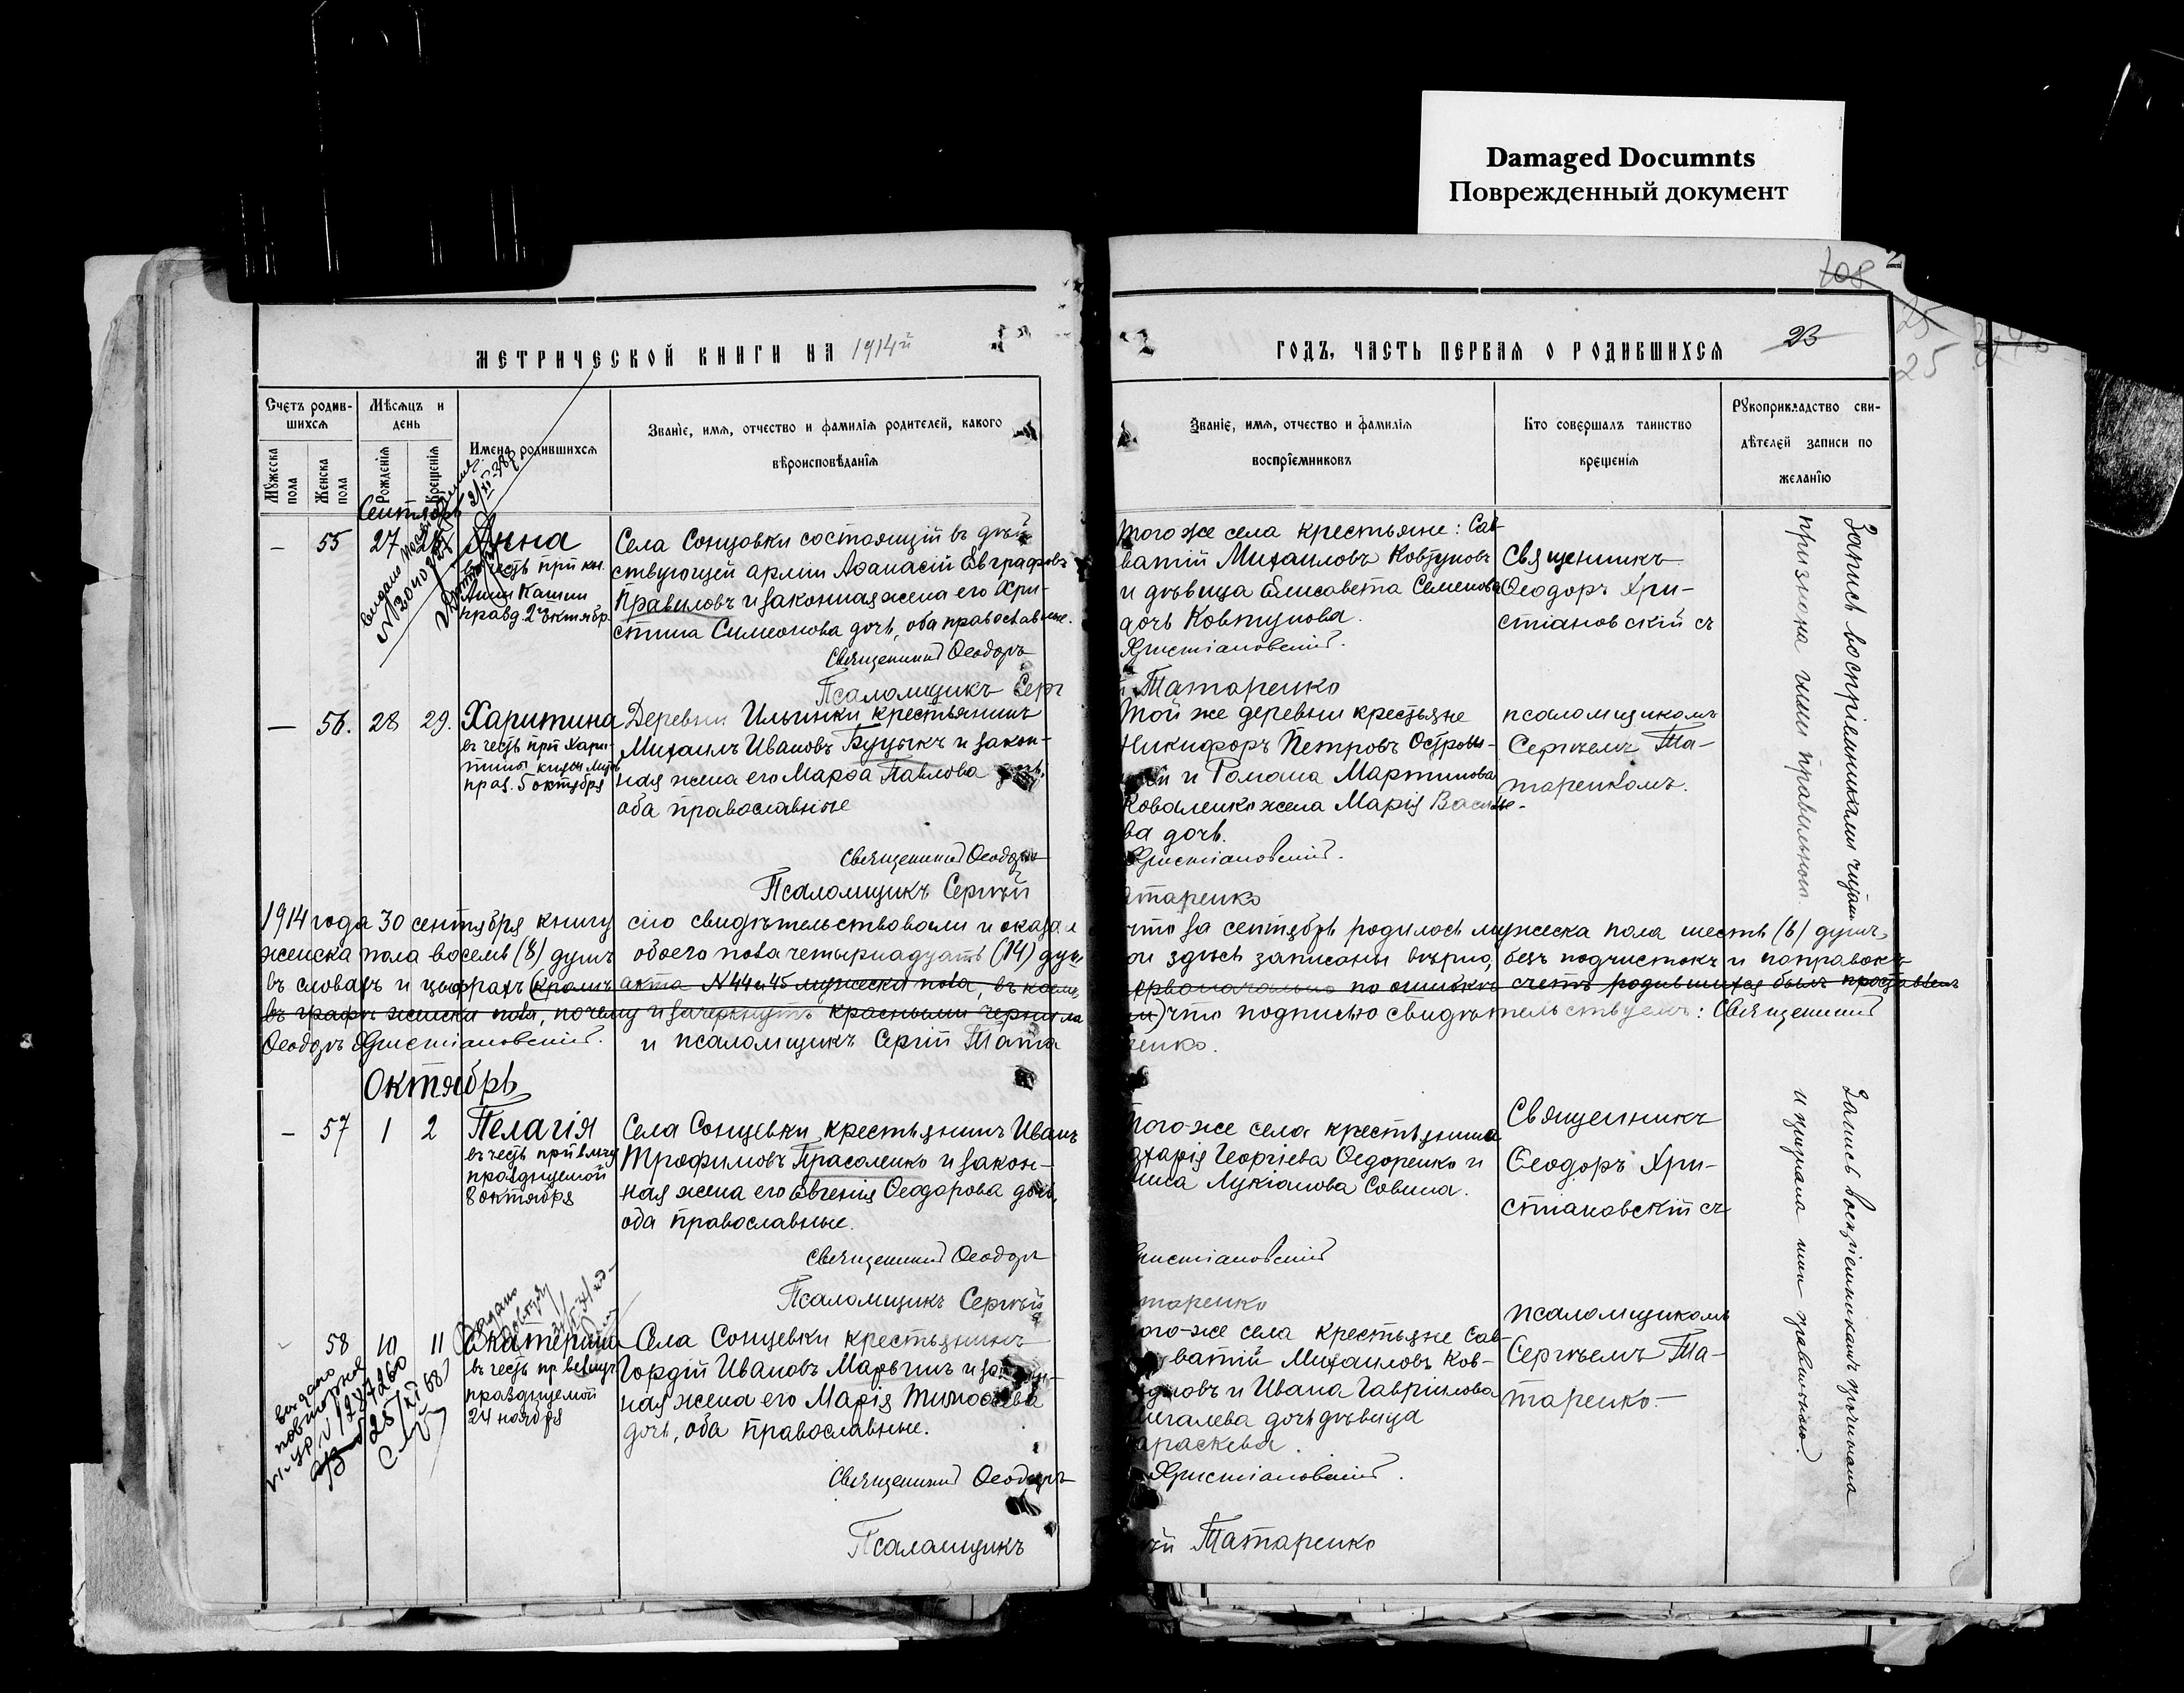 Damaged Documnts
Поврежденный документ
108
25
25
23
МЕТРИЧЕСКОЙ КНИГИ НА 1914й
ГОДЪ, ЧАСТЬ ПЕРВАЯ О РОДИВШИХСЯ
Счетъ родив-
шихся
Мѣсяцъ и
день
Имена родившихся
Званіе, имя, отчество и фамилія родителей, какого
вѣроисповѣданія
Мужеска пола
Женска пола
Рожденія
Крещенія
Званіе, имя, отчество и фамилія
воспріемниковъ
Кто совершалъ таинство
крещенія
Рукоприкладство сви-
дѣтелей записи по
желанію
Сентябрь
— 55 27 Анна
въ честь прп кн.
Анны Кашин
празд. 2 октябр.
Села Сонцовки состоящій въ дѣй
ствующей арміи Аѳанасій Евграфовъ
Правиловъ и законная жена его Хри-
стина Симеонова дочь, оба православные.
Священникъ Ѳеодоръ
Псаломщикъ Серг
того же села крестьяне: Сав-
ватій Михаиловъ Ковтуновъ
и дѣвица Елисавета Семенова
дочь Ковтунова.
Христіановскій.
Татаренко
Священникъ
Ѳеодоръ Хри-
стіановскій съ
— 56. 28 29. Харитина
въ честь прп Хари-
тины княж Лит
праз. 5 октября
Деревни Ильинки крестьянинъ
Михаилъ Ивановъ Буцыкъ и закон-
ная жена его Марѳа Павлова дочь,
оба православные
Священникъ Ѳеодоръ
Псаломщикъ Сергѣй
той же деревни крестьяне
Никифоръ Петровъ Островс-
кій и Романа Мартинова
Коваленко жена Марія Василье-
ва дочь.
Христіановскій.
атаренко
псаломщикомъ
Сергѣемъ Та-
таренкомъ.
Запись воспріемниками читана
признана ими правильною.
1914 года 30 сентября книгу сію свидѣтельствовали и оказал
что за сентябрь родилось мужеска пола шесть (6) душъ,
женска пола восемь (8) душъ обоего пола четырнадцать (14) душ
ои здѣсь записаны вѣрно, безъ подчистокъ и поправокъ
въ словахъ и цыфрахъ (кромѣ акта N 44 и 45 мужеска пола, въ коемъ
ервоначально по ошибкѣ счетъ родившихся былъ проставленъ
въ графѣ женска пола, почему и зачеркнутъ красными чернила
ми) что подписью свидѣтельствуемъ: Священникъ
Ѳеодоръ Христіановскій. и псаломщикъ Сергій Тата
ренко.
Октябрь
— 57 1 2 Пелагія
въ честь прп влмцы
празднуемой
8 октября
Села Сонцевки крестьянинъ Иванъ
Трофимовъ Прасоленко и закон-
ная жена его Евгенія Ѳеодорова дочь,
оба православные.
Священникъ Ѳеодоръ
Псаломщикъ Сергѣй
того-же села крестьянина
Захарія Георгіева Ѳедоренко и
Лукіанова Совина.
ристіановскій
таренко
Священникъ
Ѳеодоръ Хри-
стіановскій съ
58 10 11 Екатерина
въ честь пр велмц
празднуемой
24 ноября
Села Сонцевки крестьянинъ
Гордій Ивановъ Марьинъ и закон-
ная жена его Марія Тимоѳеева
дочь, оба православные.
Священникъ Ѳеодоръ
Псаломщикъ
того-же села крестьяне Сав-
ватій Михаиловъ Ков-
туновъ и Ивана Гавріилова
игалева дочь дѣвица
араскева.
Христіановскій.
ѣй Татаренко
псаломщикомъ
Сергѣемъ Та-
таренко.
Запись воспріемниками прочитана
и признана ими правильною.
выдано
повторное